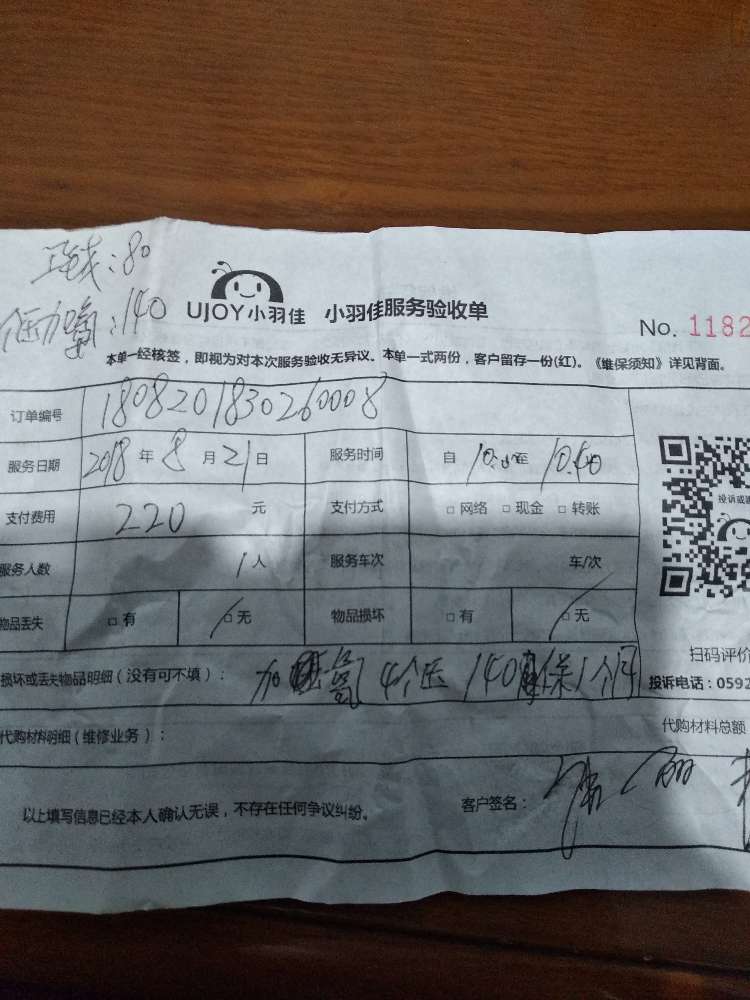 工钱：80
个压加氟：140
UJOY小羽佳 小羽佳服务验收单
No. 1182
本单一经核签，即视为对本次服务验收无异议。本单一式两份，客户留存一份(红)。《维保须知》详见背面。
订单编号 1808201830260008
服务日期 2018 年 8 月 21 日 服务时间 自 10. 至 10.
支付费用 220 元 支付方式 □ 网络 □ 现金 □ 转账
服务人数 1 人 服务车次 车/次
投诉或
物品丢失 □ 有 □ 无 物品损坏 □ 有 □ 无
扫码评价
损坏或丢失物品明细（没有可不填）： 加 氟 4个压 140 保1个月
投诉电话：0592
代购材料明细（维修业务）： 代购材料总额
以上填写信息已经本人确认无误，不存在任何争议纠纷。 客户签名：